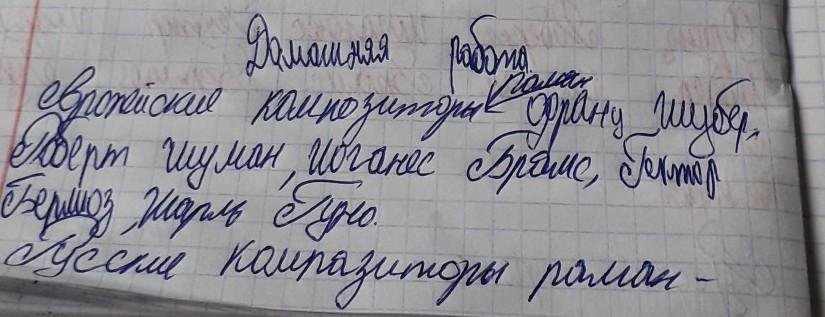 Домашняя работа
европейские композиторы роман Франц Шубер,
Роберт Шуман, Иоганес Брамс, Гектор
Берлиоз, Жарль Гуно.
Русские компразиторы роман –